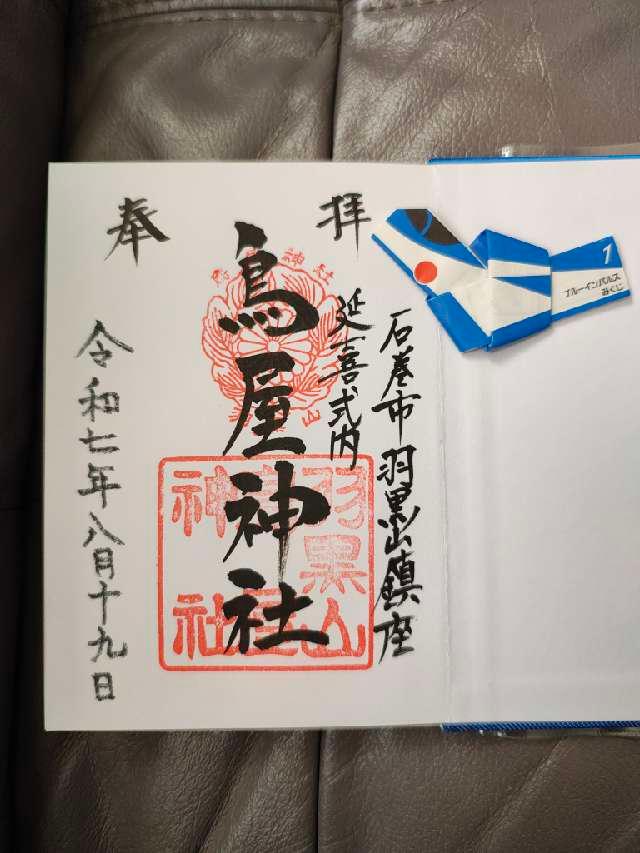 奉拝
石巻市羽黒山鎮座
延喜式内
鳥屋神社
令和七年八月十九日
羽黒山
神社
神社
1
ブルーインパルス
みくじ